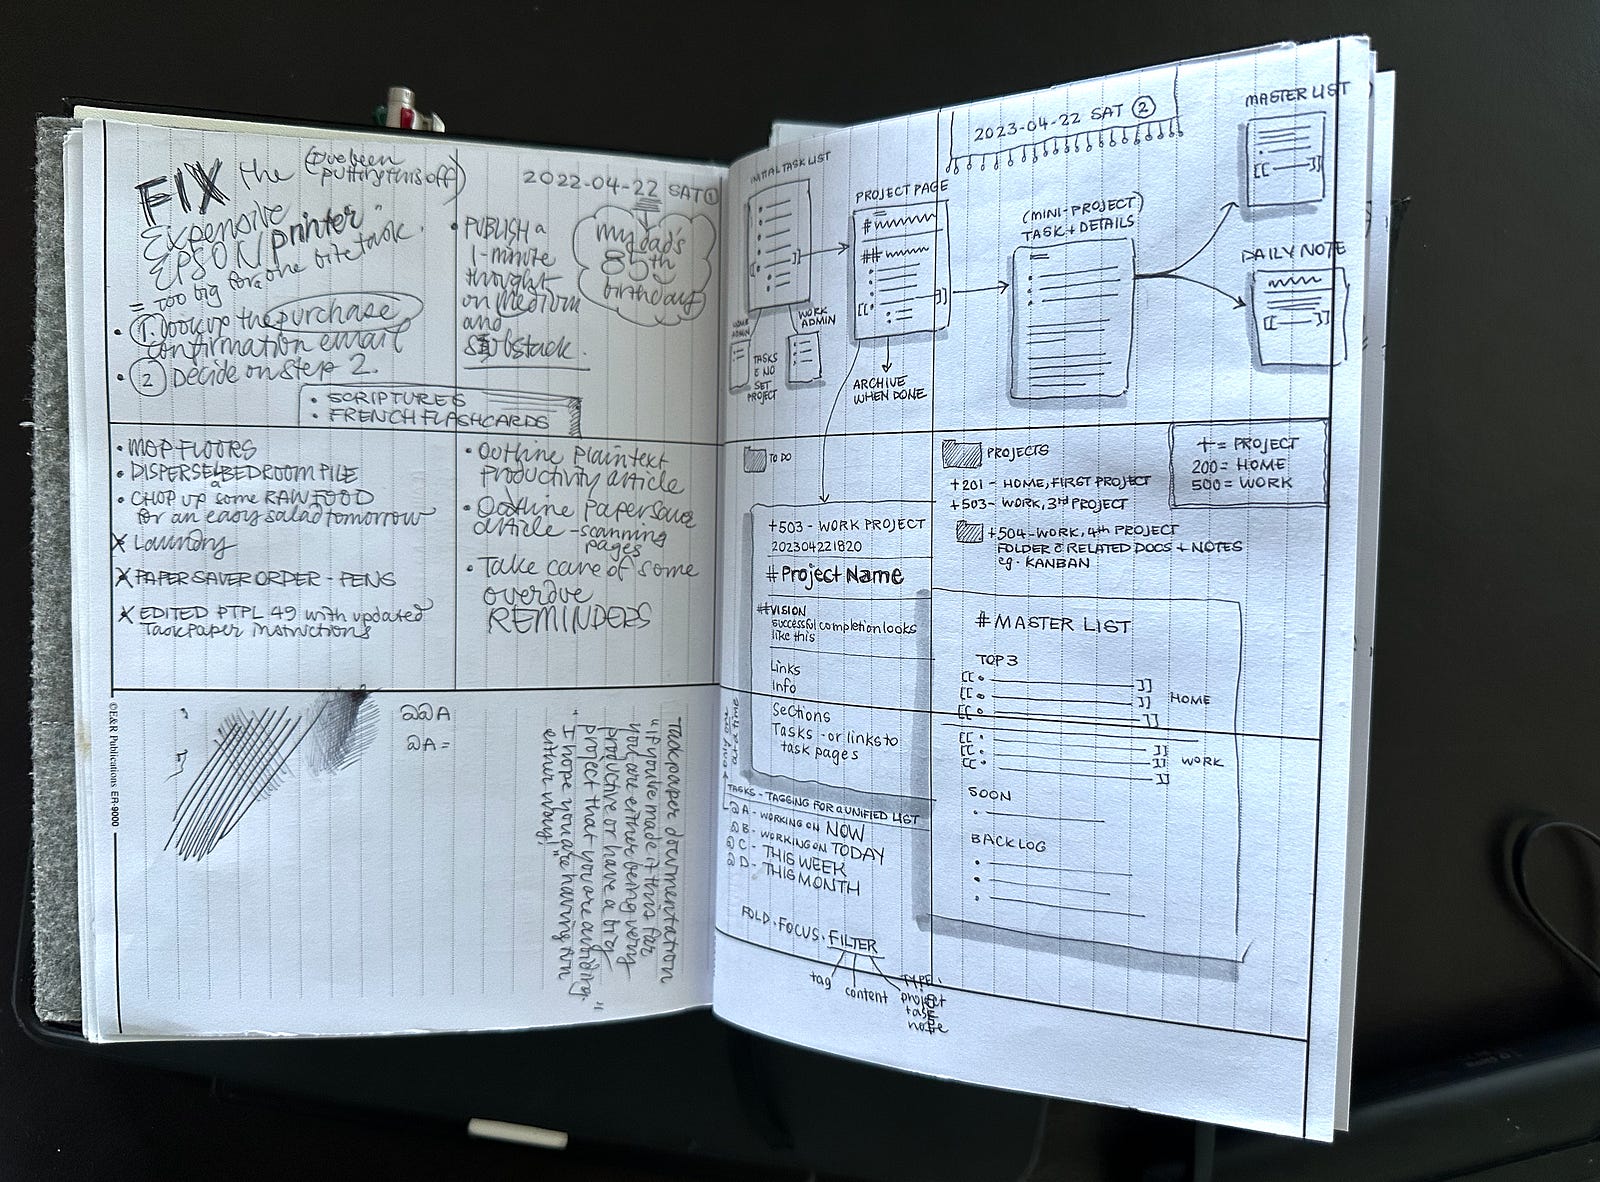 FIX the (I've been
putting this off)
Expensive
EPSON printer"
= too big for one bite task.
• 1. look up the purchase
confirmation email
• 2 Decide on step 2.
2022-04-22 SAT 1
• PUBLISH a
1-minute
thought
on Medium
and
substack.
my dad's
85th
birthday
• SCRIPTURES
• FRENCH FLASHCARDS
• MOP FLOORS
• DISPERSE BEDROOM PILE
• CHOP up some RAW FOOD
for an easy salad tomorrow
X Laundry
X PAPER SAVER ORDER - PENS
X EDITED PTPL 49 with updated
TaskPaper instructions
• Outline plain text
productivity article
• Outline Papersaver
article - scanning
pages
• Take care of some
overdue
REMINDERS
@@A
@A =
Taskpaper documentation
"if you've made it this far
you are either being very
productive or have a big
project that you are avoiding.
I hope you are having fun
either way!"
©E&R Publications ER-9000
2023-04-22 SAT 2
INITIAL TASK LIST
PROJECT PAGE
#
##
[[• ]]
(MINI-PROJECT)
TASK + DETAILS
MASTER LIST
[[ ]]
DAILY NOTE
[[ ]]
HOME
ADMIN
WORK
ADMIN
TASKS
NO
SET
PROJECT
ARCHIVE
WHEN DONE
TO DO
+503 - WORK PROJECT
202304221820
#Project Name
##VISION
successful completion looks
like this
Links
Info
Sections
Tasks - or links to
task pages
only one
at a time
TASKS - TAGGING FOR a UNIFIED LIST
@A - WORKING ON NOW
@B - WORKING ON TODAY
@C - THIS WEEK
@D - THIS MONTH
FOLD · FOCUS · FILTER
tag
content
TYPE:
project
task
note
PROJECTS
+201 - HOME, FIRST PROJECT
+503 - WORK, 3rd PROJECT
+504 - WORK, 4th PROJECT
FOLDER RELATED DOCS + NOTES
eg. KANBAN
+ = PROJECT
200 = HOME
500 = WORK
# MASTER LIST
TOP 3
[[• ]]
[[• ]] HOME
[[• ]]
[[•
[[• ]]
[[• ]] WORK
]]
SOON
•
BACKLOG
•
•
•